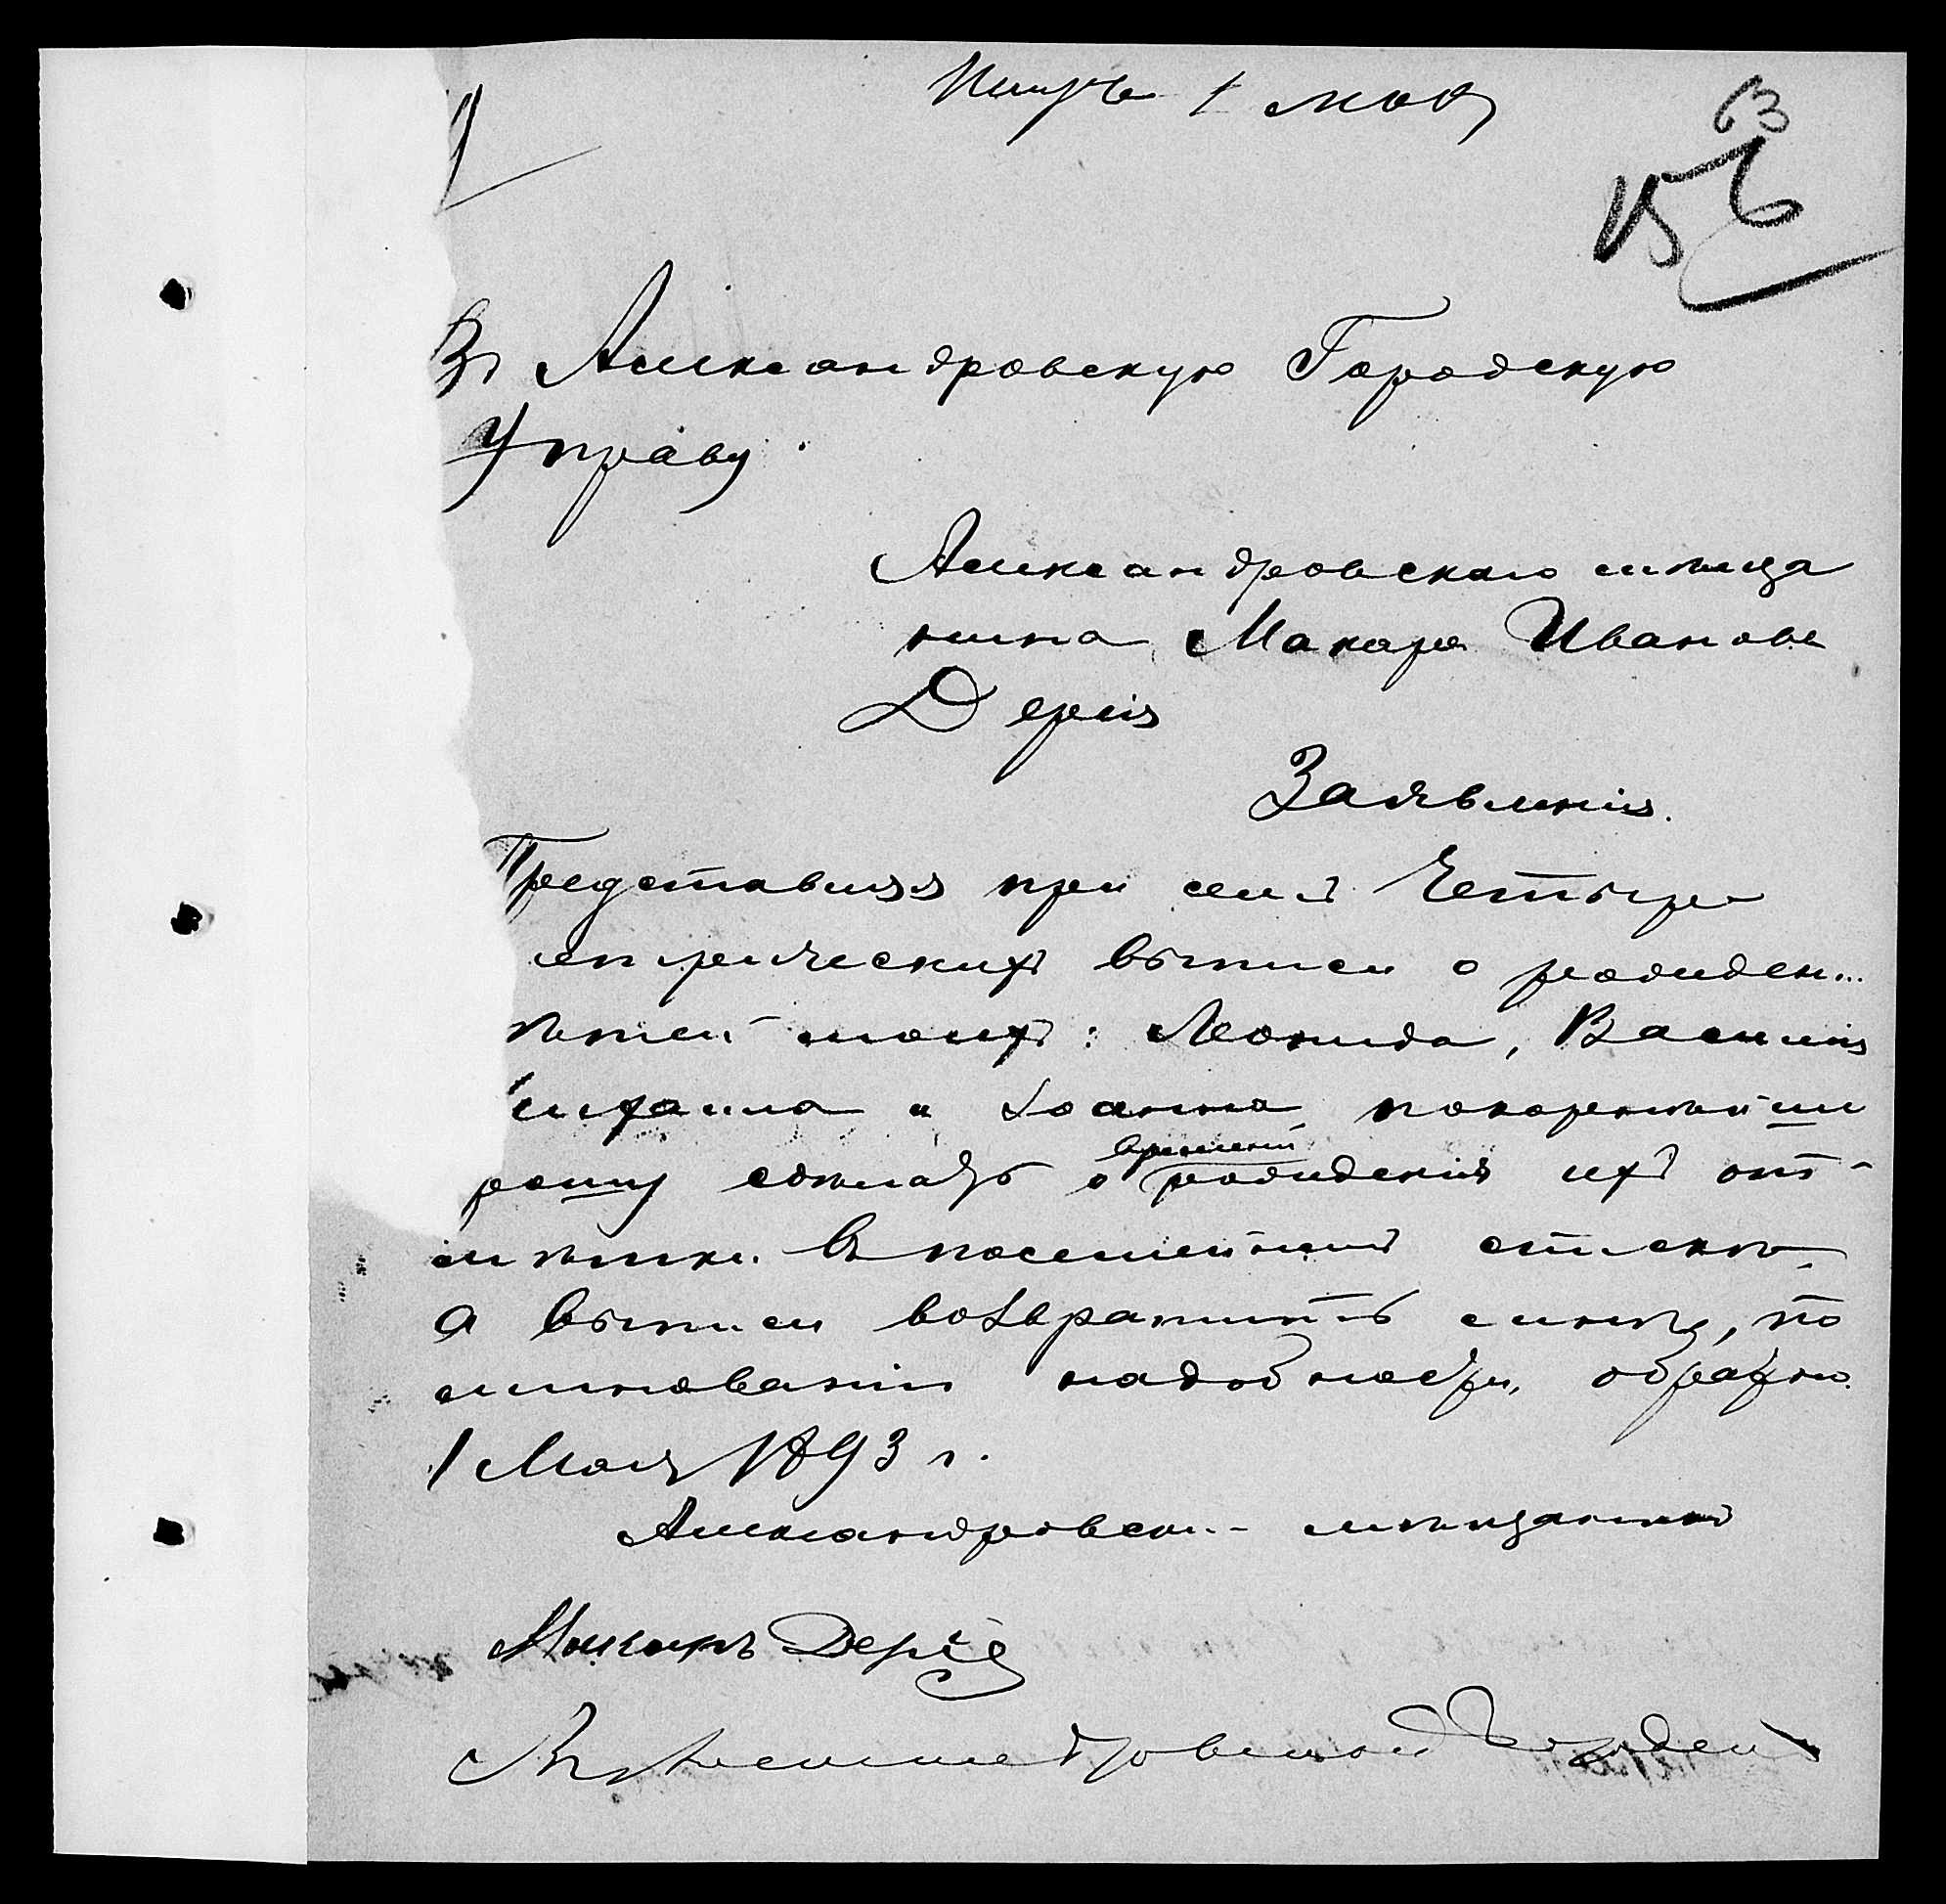 1 мая
63
156
Въ Александровскую Городскую
Управу.
Александровскаго мѣща
нина Макара Иванова
Дерія
Заявленія.
Представляя при семъ Четыре
метрическихъ выписи о рожден...
дѣтей моихъ: Леонида, Василія
Михаила и Іоанна покорнѣйше
прошу сдѣлать о времени рожденія ихъ от-
мѣтки въ посемейномъ спискѣ
а выписи возвратить мнѣ, по
миновании надобности, обратно.
1 Мая 1893 г.
Александровск.- мѣщанинъ
Макаръ Дерій